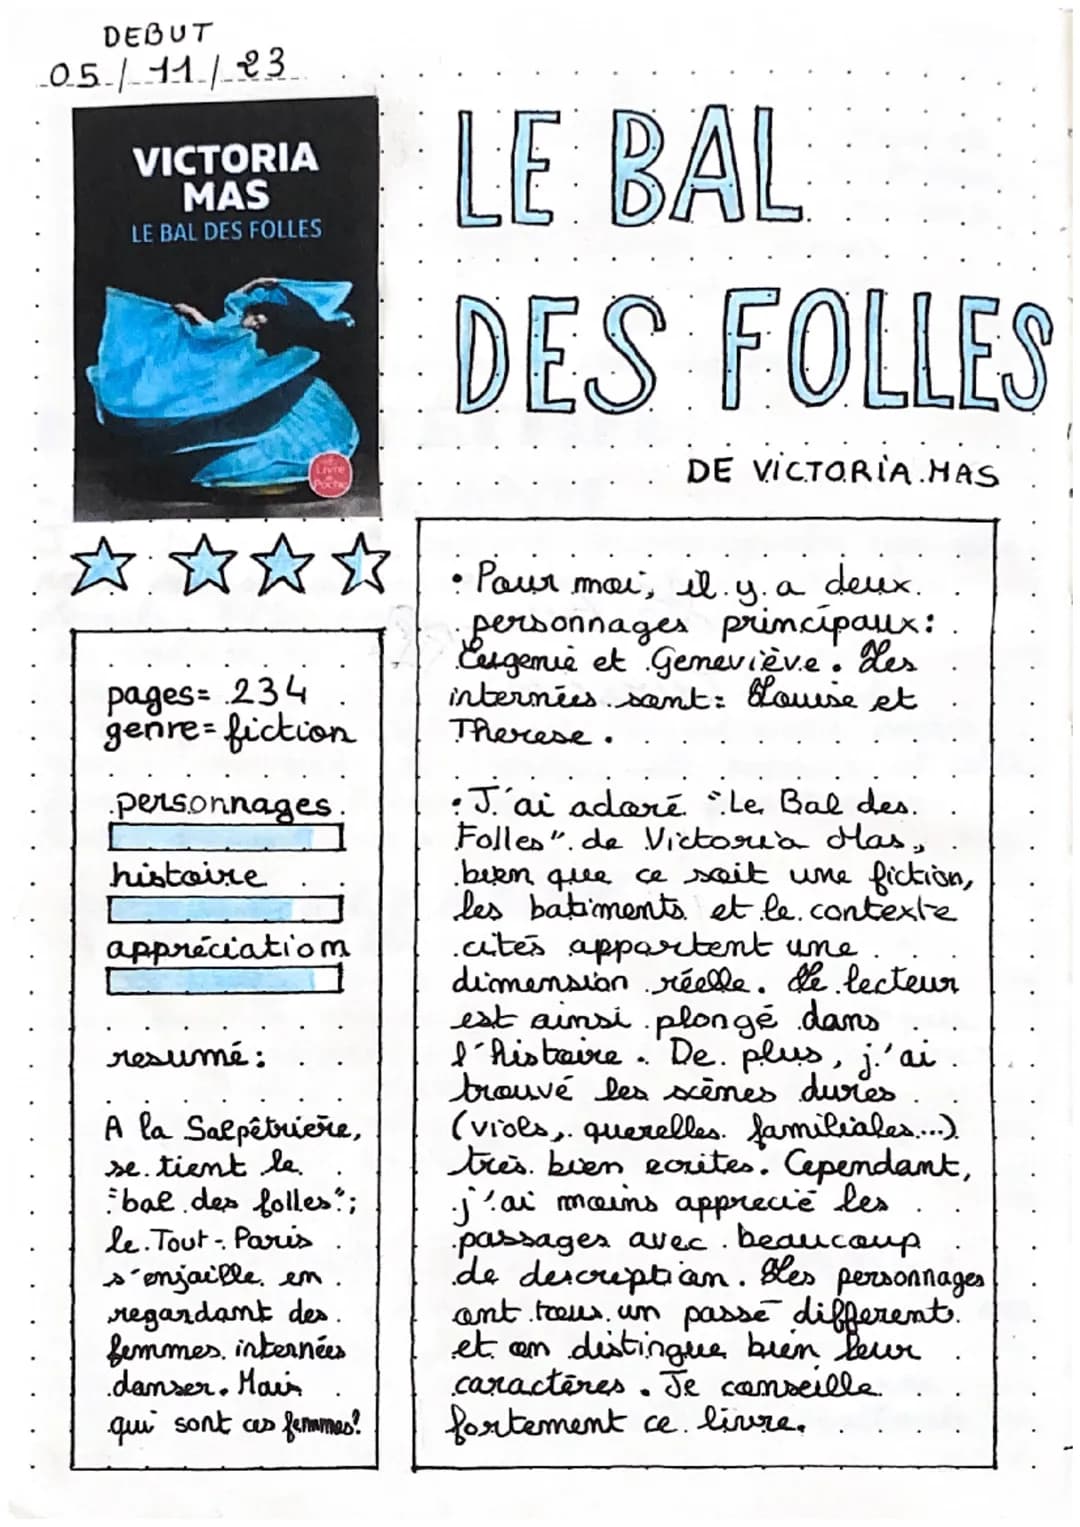 DEBUT
05/11/23
VICTORIA
MAS
LE BAL DES FOLLES
Livre
de
Poche
LE BAL
DES FOLLES
DE VICTORIA MAS
pages= 234
genre= fiction
personnages
histoire
appréciation
resumé:
A la Salpêtrière,
se tient le
"bal des folles";
le Tout-Paris
s'enjaille en
regardant des
femmes internées
danser. Mais
qui sont ces femmes?
• Pour moi, il y a deux
personnages principaux:
Eugenie et Geneviève. Les
internées sont: Louise et
Therese.
• J'ai adoré "Le Bal des
Folles" de Victoria Mas,
bien que ce soit une fiction,
les batiments et le contexte
cités apportent une
dimension réelle. Le lecteur
est ainsi plongé dans
l'histoire. De plus, j'ai
trouvé les scènes dures
(viols, querelles familiales...)
très bien ecrites. Cependant,
j'ai moins apprecié les
passages avec beaucoup
de description. Les personnages
ont tous un passé different
et on distingue bien leur
caractères. Je conseille
fortement ce livre.